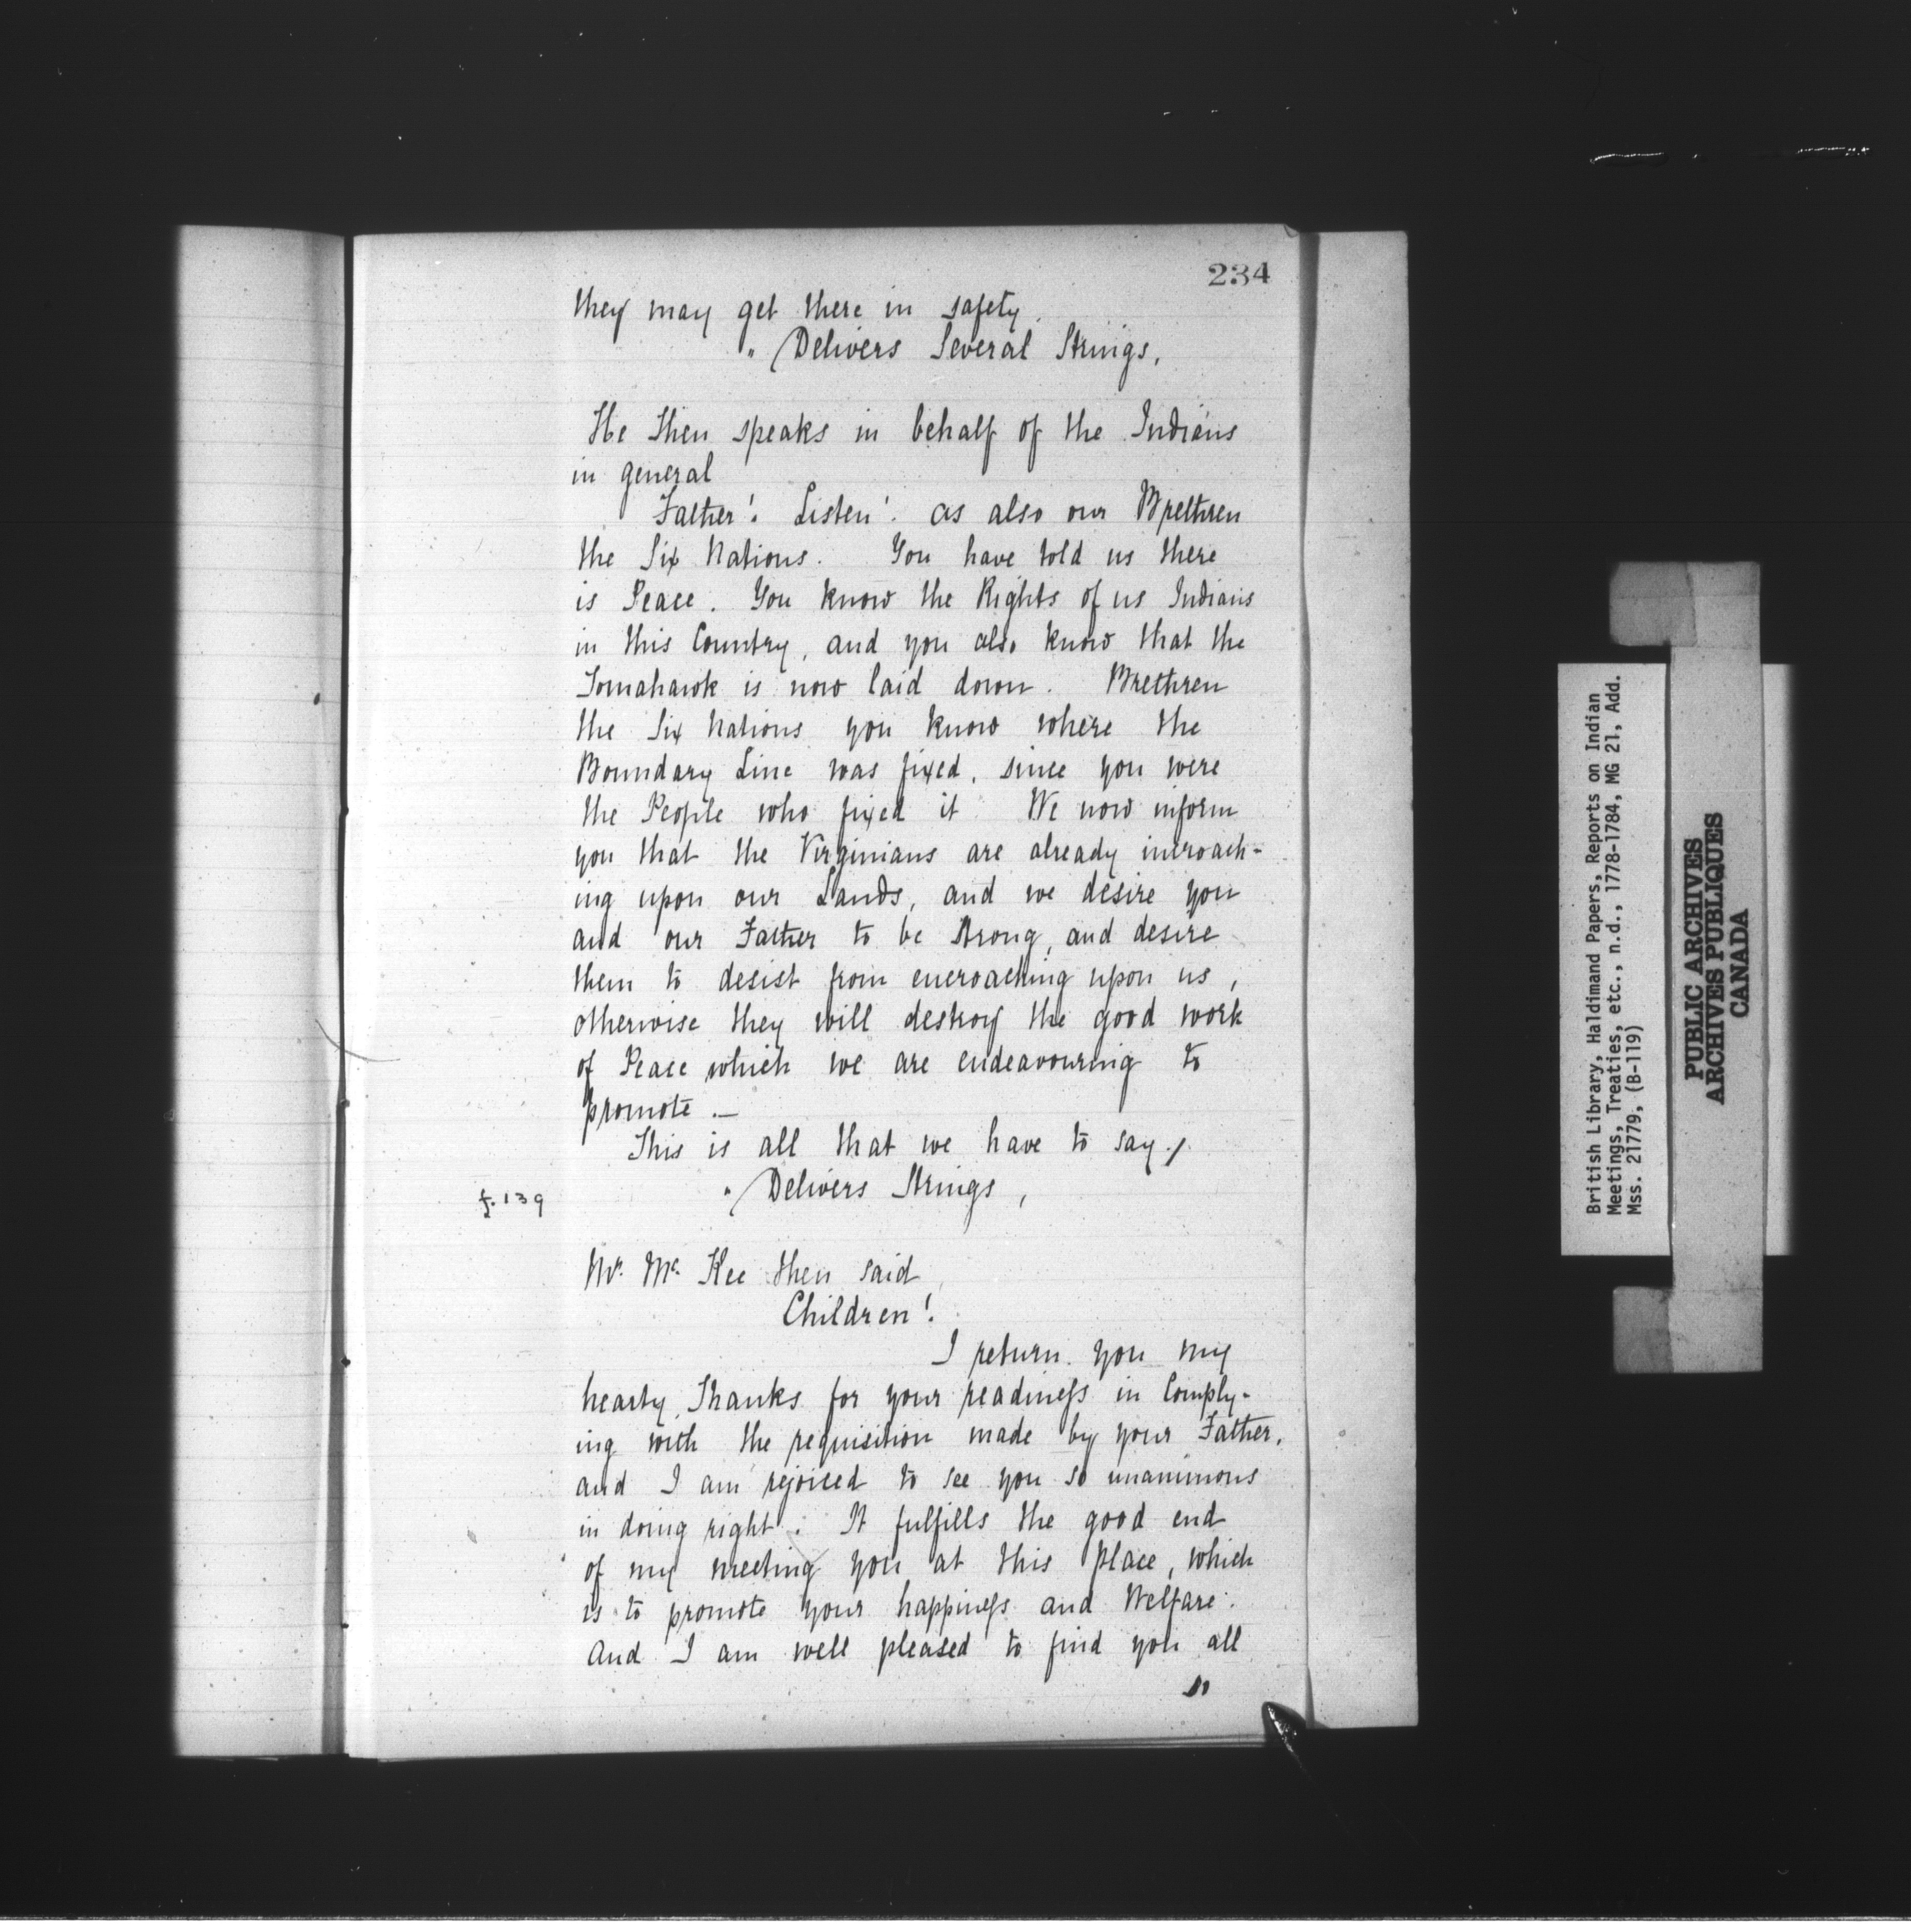 234
they may get there in safety.
" Delivers Several Strings,
He then speaks in behalf of the Indians
in general
Father! Listen! as also our Brethren
the Six Nations. You have told us there
is Peace. You know the Rights of us Indians
in this Country, and you also know that the
Tomahawk is now laid down. Brethren
the Six Nations you know where the
Boundary Line was fixed, since you were
the People who fixed it. We now inform
you that the Virginians are already incroach-
ing upon our Lands, and we desire you
and our Father to be strong, and desire
them to desist from encroaching upon us,
otherwise they will destroy the good work
of Peace which we are endeavouring to
promote.—
This is all that we have to say./
" Delivers Strings,
f. 139
Mr. Mc. Kee then said
Children!
I return you my
hearty Thanks for your readiness in Comply-
ing with the requisition made by your Father,
and I am rejoiced to see you so unanimous
in doing right. It fulfills the good end
of my meeting you at this place, which
is to promote your happiness and Welfare.
And I am well pleased to find you all
so
British Library, Haldimand Papers, Reports on Indian
Meetings, Treaties, etc., n.d., 1778-1784, MG 21, Add.
Mss. 21779, (B-119)
PUBLIC ARCHIVES
ARCHIVES PUBLIQUES
CANADA